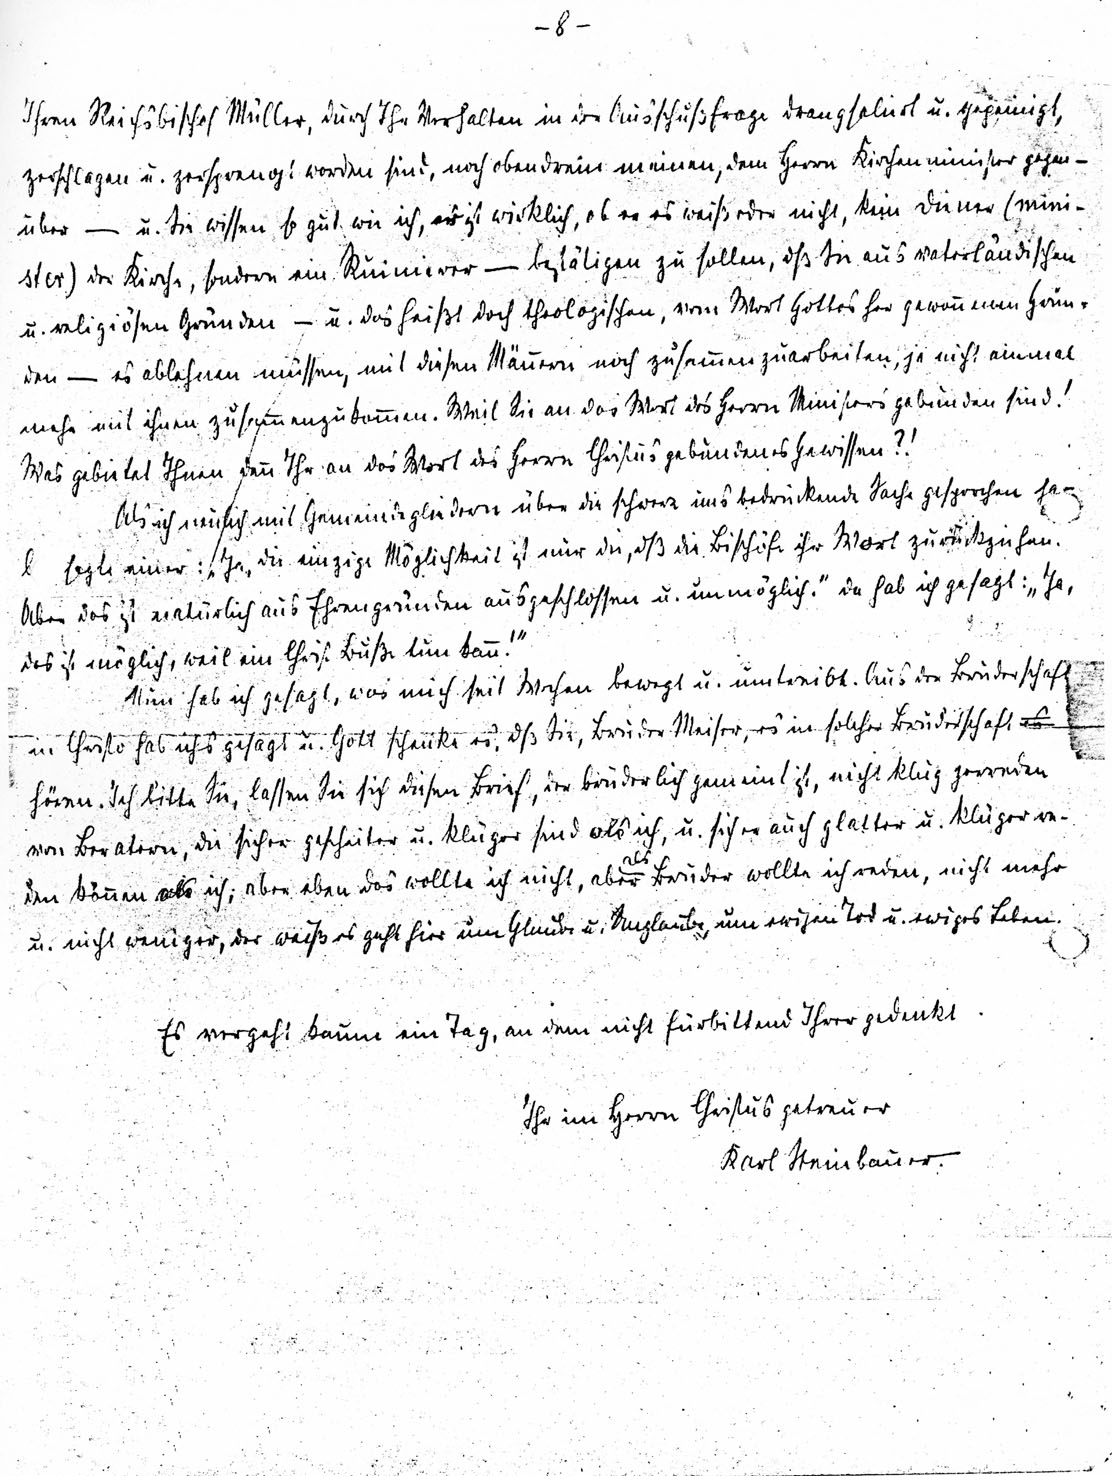 – 8 –
Ihren Reichsbischof Müller, durch Ihr Verhalten in der Ausschußfrage drangsaliert u. gepeinigt,
zerschlagen u. zersprengt worden sind, noch obendrein meinen, dem Herrn Kirchenminister gegen-
über — u. Sie wissen so gut wie ich, er ist wirklich, ob er es weiß oder nicht, kein Diener (mini-
ster) der Kirche, sondern ein Ruinierer — bestätigen zu sollen, dß Sie aus vaterländischen
u. religiösen Gründen — u. das heißt doch theologischen, vom Wort Gottes her gewonnenen Grün-
den — es ablehnen müssen, mit diesen Männern noch zusammenzuarbeiten, ja nicht einmal
mehr mit ihnen zusammenzukommen. Weil Sie an das Wort des Herrn Ministers gebunden sind!
Was gebietet Ihnen denn Ihr an das Wort des Herrn Christus gebundenes Gewissen?!
Als ich neulich mit Gemeindegliedern über die schwere uns bedrückende Sache gesprochen ha-
sagte einer: „Ja, die einzige Möglichkeit ist nur die, dß die Bischöfe ihr Wort zurückziehen.
Aber das ist natürlich aus Ehrengründen ausgeschlossen u. unmöglich." da hab ich gesagt: „Ja,
das ist möglich, weil ein Christ Buße tun kann!"
Nun hab ich gesagt, was mich seit Wochen bewegt u. umtreibt. Aus der Bruderschaft
in Christo hab ichs gesagt u. Gott schenke es, dß Sie, Bruder Meiser, es in solcher Bruderschaft es
hören. Ich bitte Sie, lassen Sie sich diesen Brief, der brüderlich gemeint ist, nicht klug zerreden
von Beratern, die sicher gescheiter u. klüger sind als ich, u. sicher auch glatter u. klüger re-
den können als ich; aber eben das wollte ich nicht, aber als Bruder wollte ich reden, nicht mehr
u. nicht weniger, der weiß es geht hier um Glaube u. Unglaube, um ewigen Tod u. ewiges Leben.
Es vergeht kaum ein Tag, an dem nicht fürbittend Ihrer gedenkt
Ihr im Herrn Christus getreuer
Karl Steinbauer.